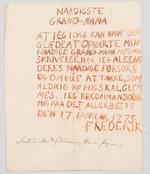 NAADIGSTE
GRAND-MAMA
AT IEG IDAG KAN HAVE DEN
GLEDE AT OPVARTE MIN
NAADIGE GRAND-MAMA MED MIN
SKRIVELSE, HAR IEG ALEENE
DERES NAADIGE FORSORG
OG OMHUE AT TAKKE, SOM
ALDRIG AF MIG SKAL GLEM-
MES. IEG RECOMMANDERER
MIG PAA DET ALLERBESTE.
DEN 17 IANUAR 1775.
FREDERIK